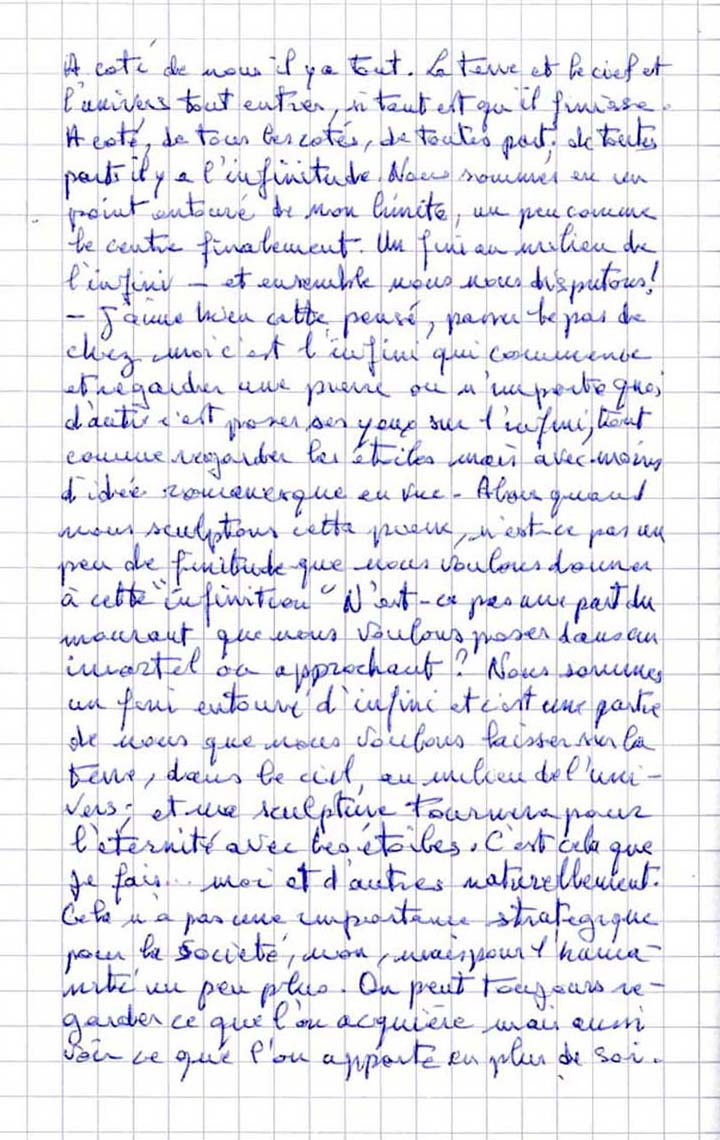 A coté de nous il y a tout. La terre et le ciel et
l'univers tout entier, si tant est qu'il finisse.
A coté, de tous les cotés, de toutes part, de toutes
parts il y a l'infinitude. Nous sommes en un
point entouré de non limite, un peu comme
le centre finalement. Un fini au milieu de
l'infini – et ensemble nous nous disputons!
– J'aime bien cette pensé, passer le pas de
chez moi c'est l'infini qui commence
et regarder une pierre ou n'importe quoi
d'autre c'est poser ses yeux sur l'infini, tout
comme regarder les étoiles mais avec moins
d'idée romanesque en vue - Alors quand
nous sculptons cette pierre, n'est-ce pas un
peu de finitude que nous voulons donner
à cette "infinition" N'est-ce pas une part du
mourant que nous voulons poser dans un
imortel ou approchant? Nous sommes
un fini entouré d'infini et c'est une partie
de nous que nous voulons laisser sur la
terre, dans le ciel, au milieu de l'uni-
vers; et ma sculpture tournera pour
l'éternité avec les étoiles. C'est cela que
je fais... moi et d'autres naturellement.
Cela n'a pas une importance strategique
pour la Societé, non, mais pour l'huma-
nité un peu plus. On peut toujours re-
garder ce que l'on acquière mais aussi
voir ce que l'on apporte en plus de soi.